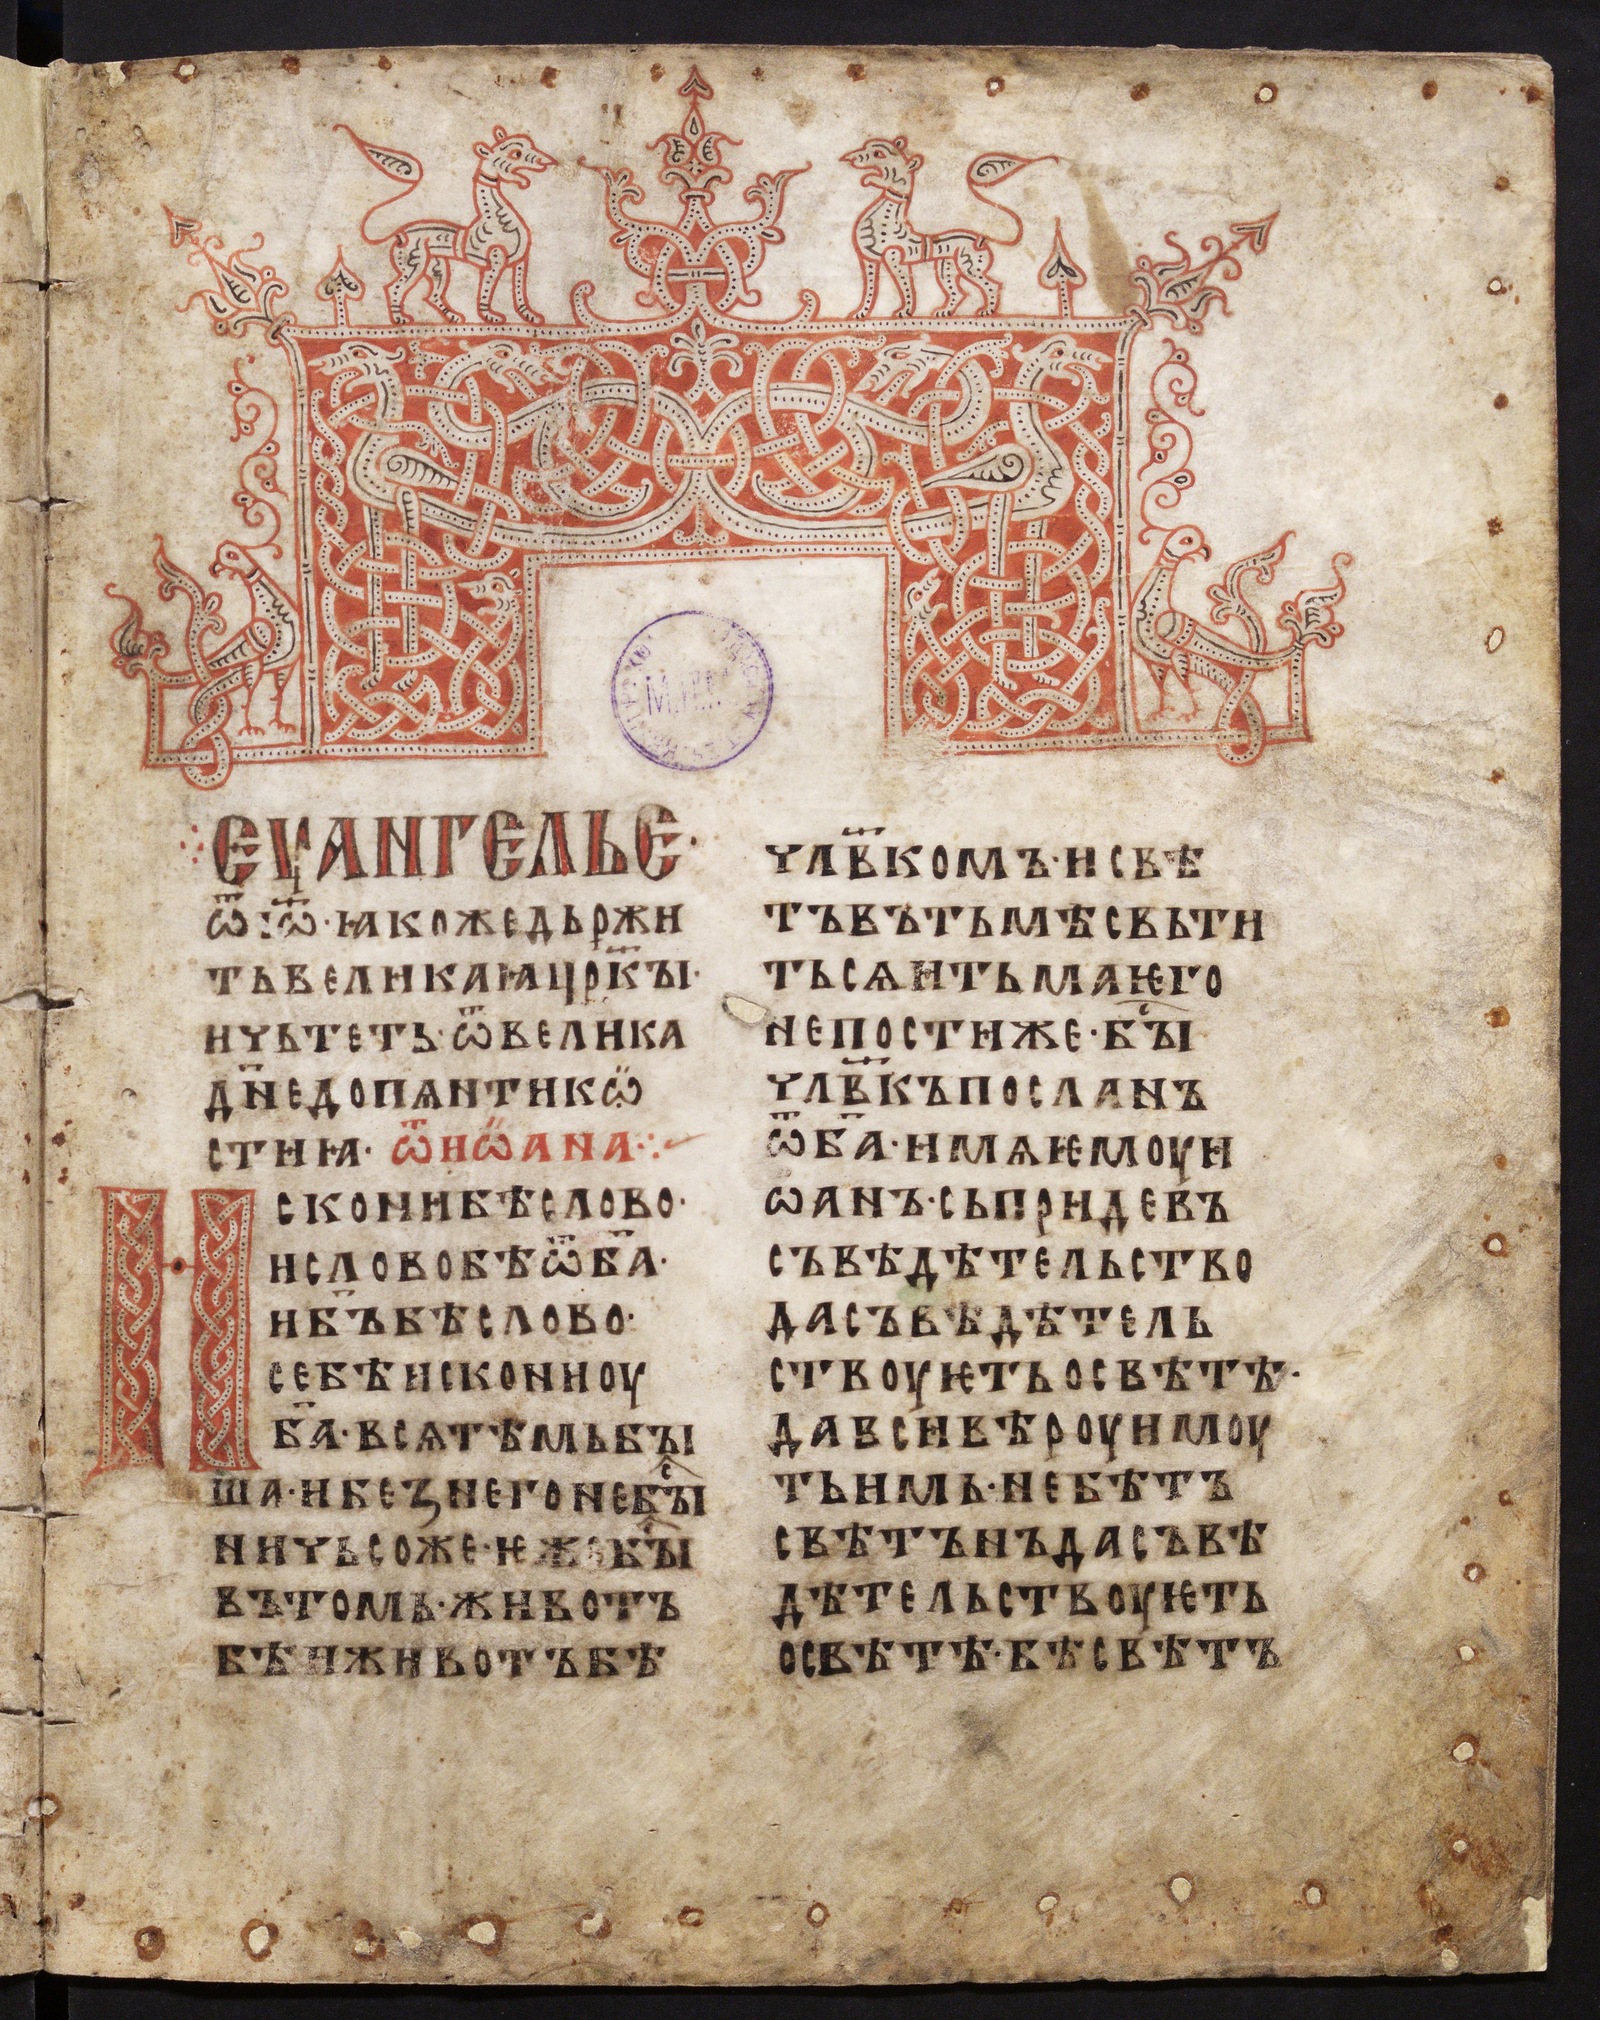 ЕѴАНГЕЛЬЕ·
ѿ і҅ѡ· ꙗкожедьржи
тьвеликаꙗцр҃кы·
ичьтеть· ѿвелика
дн҃едопѧнтикѡ
стиꙗ· ѿиѡана
Искониб​ѣслово·
исловобѣѿб҃а·
иб҃ъбѣслово·
себѣисконноу
б҃а· всятѣмьбꙑ
ша· ибезнегонебꙑⷭ
ничьсоже· ѥжебꙑⷭ
вътомь· животъ
бѣиживотъбѣ
члв҃комъ· исвѣ
тъвътьмѣсвьти
тьсѧитьмаѥго
непостиже· бꙑⷭ
члв҃къпосланъ
ѿб҃а· имѧѥмоуи
ѡанъ· сьпридевъ
съвѣдѣтельство
дасъвѣдѣтель
ствоуѥтьосвѣтѣ·
давсивѣроуимоу
тьимь· небѣтъ
свѣтънъдасъвѣ
дѣтельствоуѥть
освѣтѣ· бѣсвѣтъ